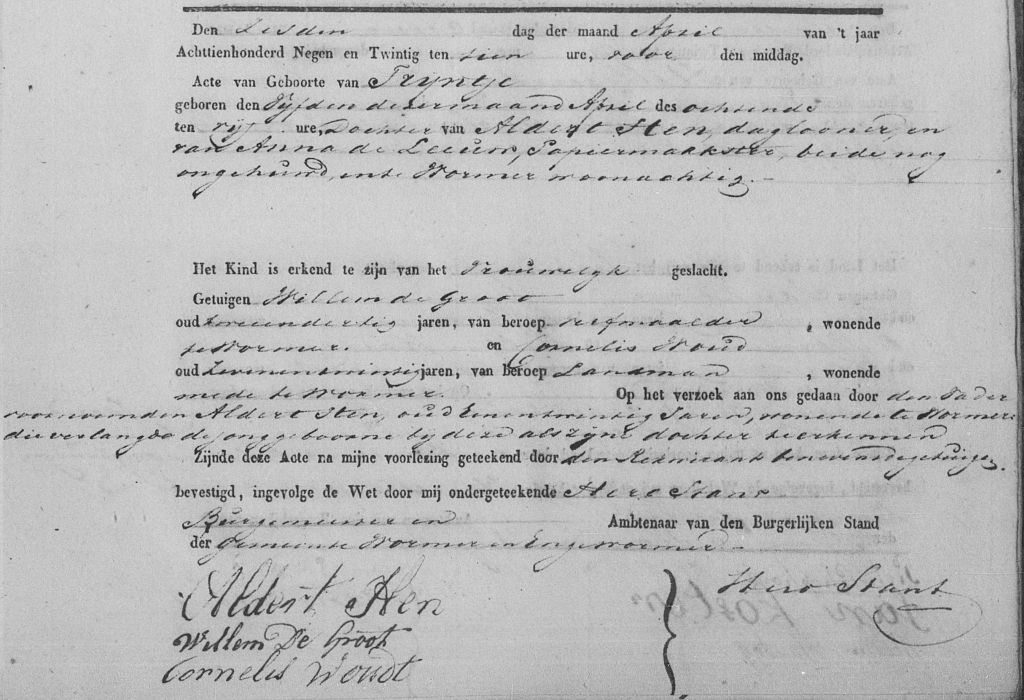 Den Zesden dag der maand April van 't jaar
Achttienhonderd Negen en Twintig ten tien ure, voor den middag.
Acte van Geboorte van Tryntje
geboren den Vyfden dezer maand April des ochtends
ten vyf ure, Dochter van Aldert Hen, daglooner, en
van Anna de Leeuw, Papiermaakster, beide nog
ongehuwd, en te Wormer woonachtig.
Het Kind is erkend te zijn van het Vrouwelyk geslacht.
Getuigen Willem de Groot
oud twee en dertig jaren, van beroep , wonende
te Wormer. en Cornelis Woud
oud Zeven en twintig jaren, van beroep Landman , wonende
mede te Wormer. Op het verzoek aan ons gedaan door den Vader
voornoemden Aldert Hen, oud Eenentwintig Jaren, wonende te Wormer
die verlangde de jonggeboorne by deze als zyne dochter te erkennen
Zijnde deze Acte na mijne voorlezing geteekend door den benevens de getuigen
bevestigd, ingevolge de Wet door mij ondergeteekende Hero Stant
Burgemeester en Ambtenaar van den Burgerlijken Stand
der Gemeente Wormer en Engewormer
Aldert Hen Hero Stant
Willem De Groot
Cornelis Woudt